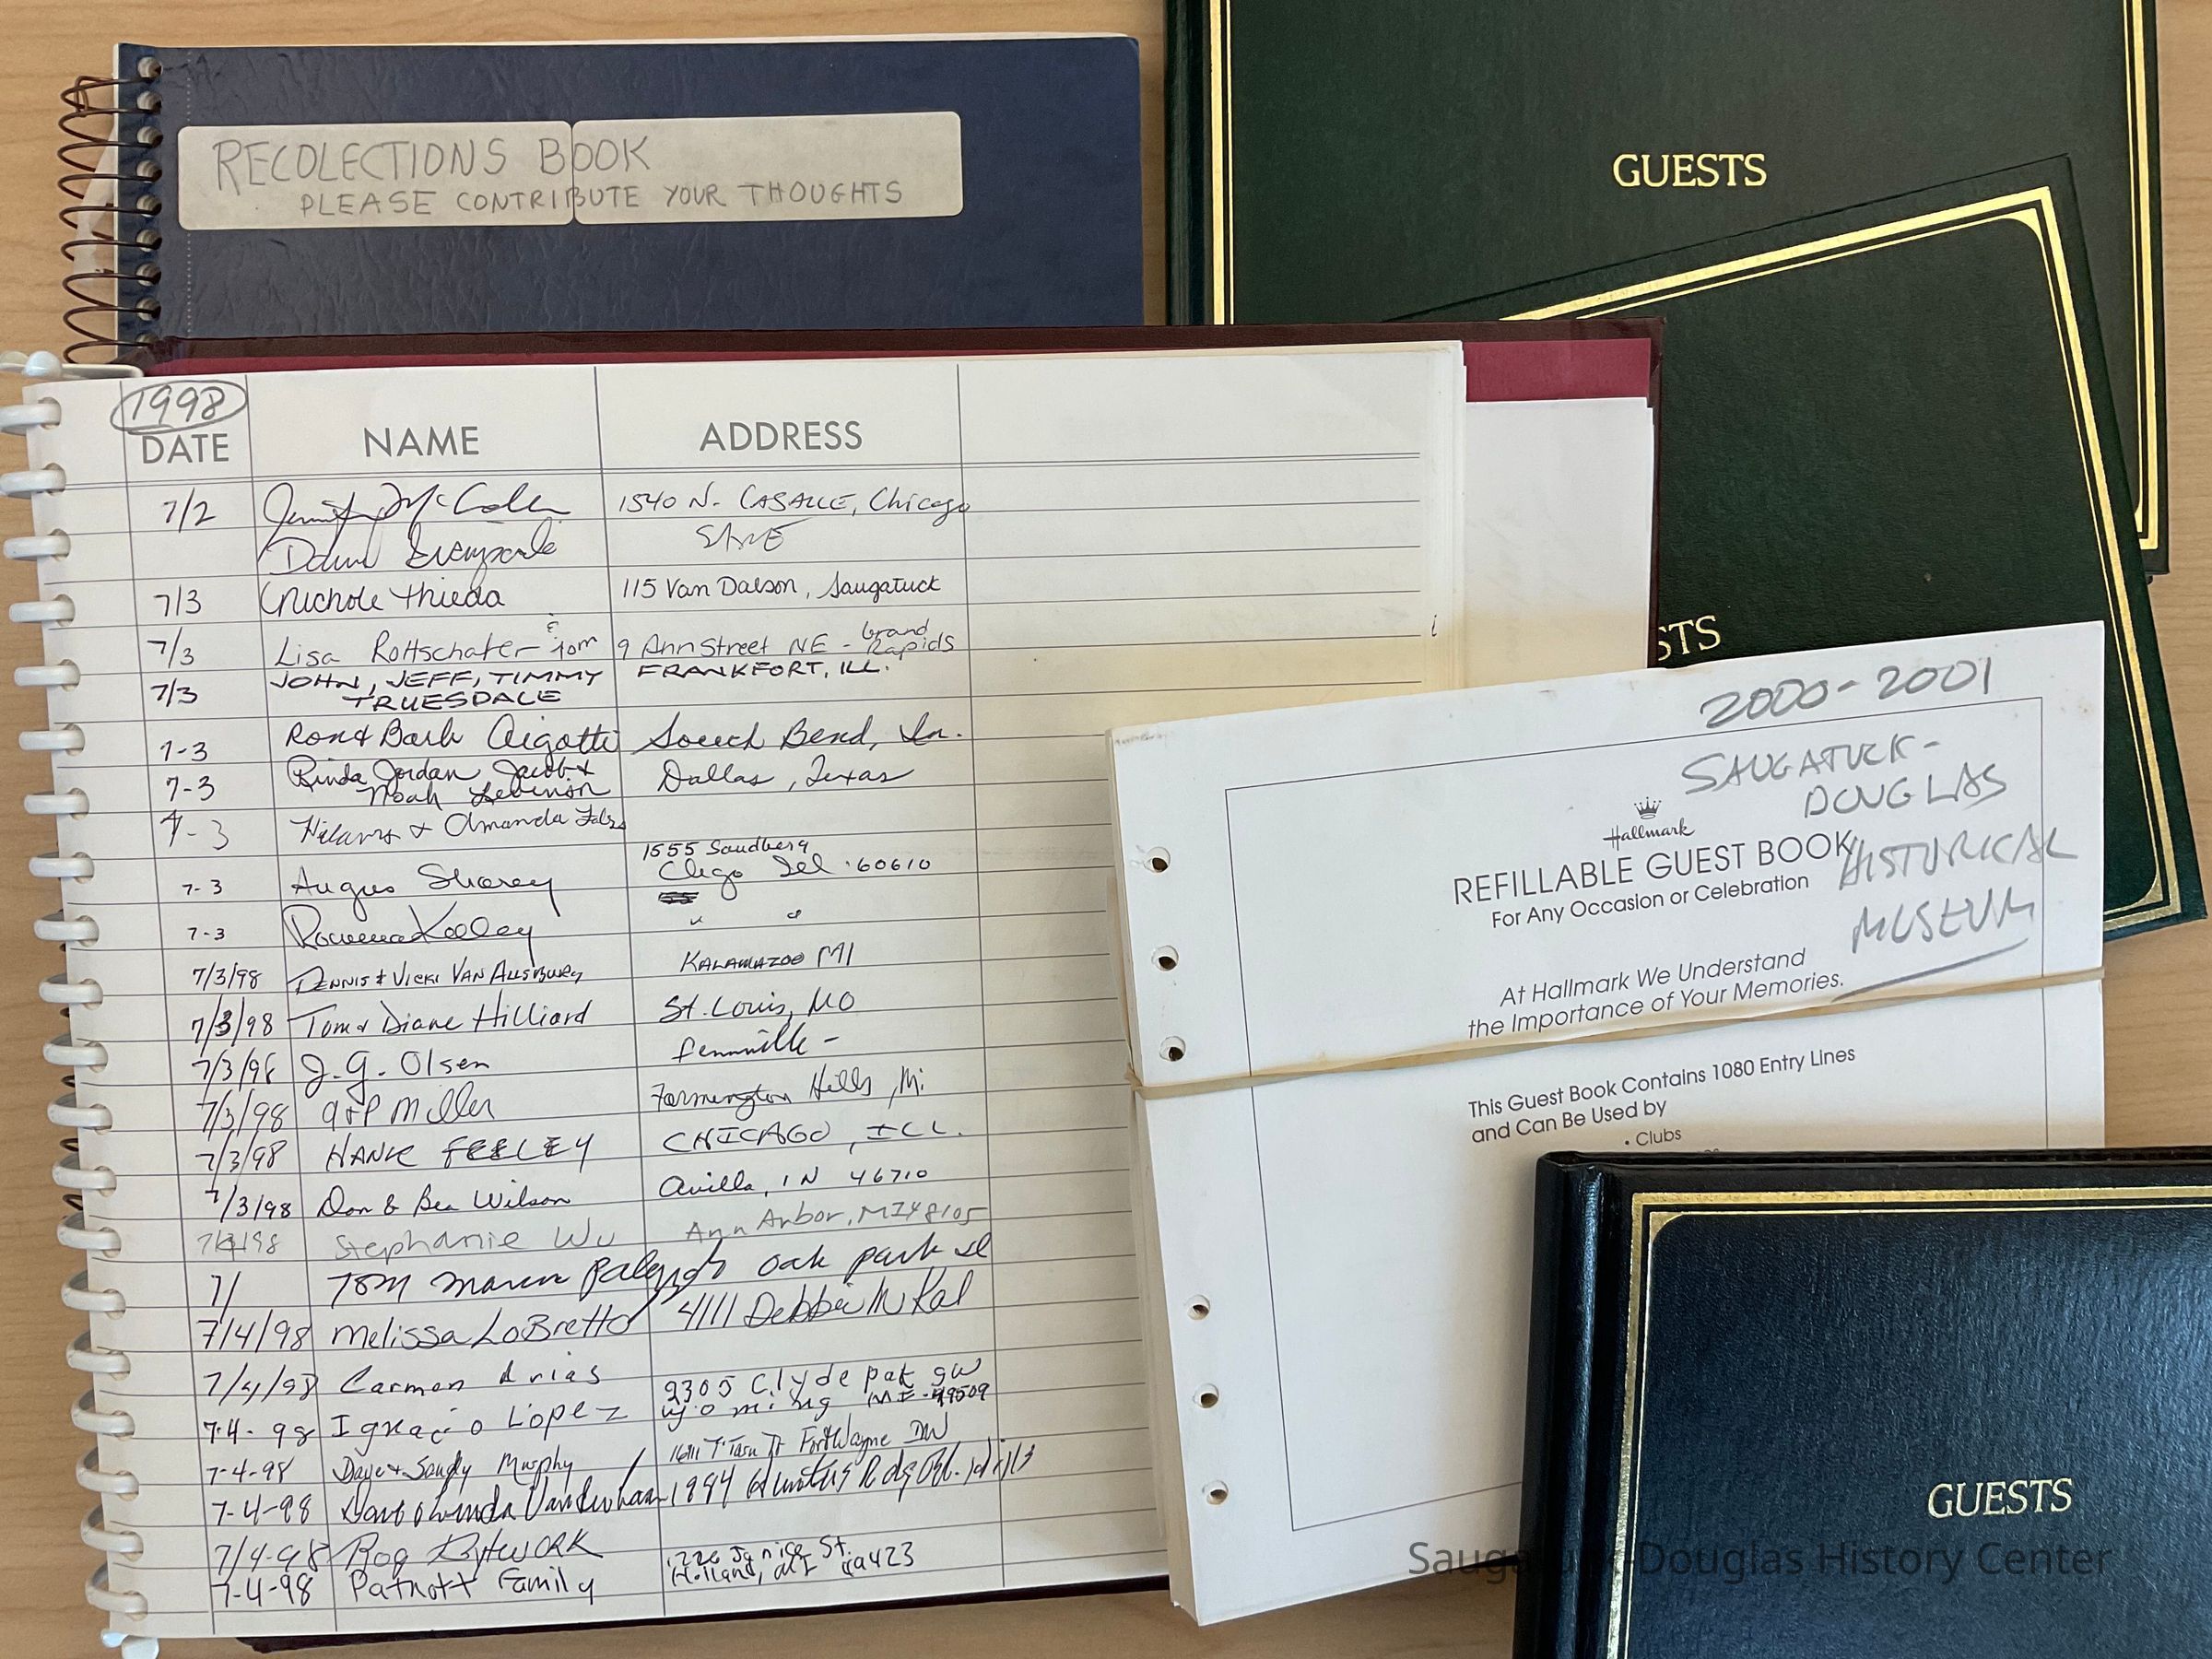 RECOLECTIONS BOOK
PLEASE CONTRIBUTE YOUR THOUGHTS
GUESTS
STS
1998
DATE NAME ADDRESS
7/2 1540 N. LASALLE, Chicago
SAME
7/3 Nichole Thieda 115 Van Dalson, Saugatuck
7/3 Lisa Rottschafer & Tom 9 Ann Street NE - Grand Rapids
7/3 JOHN, JEFF, TIMMY TRUESDALE FRANKFORT, ILL.
7-3 Ron & Barb Aigotti South Bend, In.
7-3 Linda, Jordan, Jacob & Noah Levinson Dallas, Texas
7-3 Hilary & Amanda
7-3 Angus 1555 Sandberg
Chgo Ill 60610
7-3 Rowena Kelley " "
7/3/98 DENNIS & VICKI VAN KALAMAZOO MI
7/3/98 Tom & Diane Hilliard St. Louis, MO
7/3/98 J.G. Olsen Fennville -
7/3/98 Miller Farmington Hills, Mi
7/3/98 HANK FEELEY CHICAGO, ILL.
7/3/98 Don & Bea Wilson Avilla, IN 46710
7/4/98 Stephanie Wu Ann Arbor, MI 48105
7/ Tom oak park Il
7/4/98 Melissa LoBretto 4111 Debbie Ln Kal
7/4/98 Carmen Arias 2305 Clyde park SW
7-4-98 Ignacio Lopez wyoming MI-49509
7-4-98 Dave & Sandy Murphy Fort Wayne IN
7-4-98 1994
7/4-98 Rog
7-4-98 Family Janice St.
Holland, MI 49423
2000-2001
SAUGATUCK-
DOUGLAS
HISTORICAL
MUSEUM
Hallmark
REFILLABLE GUEST BOOK
For Any Occasion or Celebration
At Hallmark We Understand
the Importance of Your Memories.
This Guest Book Contains 1080 Entry Lines
and Can Be Used by
• Clubs
GUESTS
Saugatuck-Douglas History Center